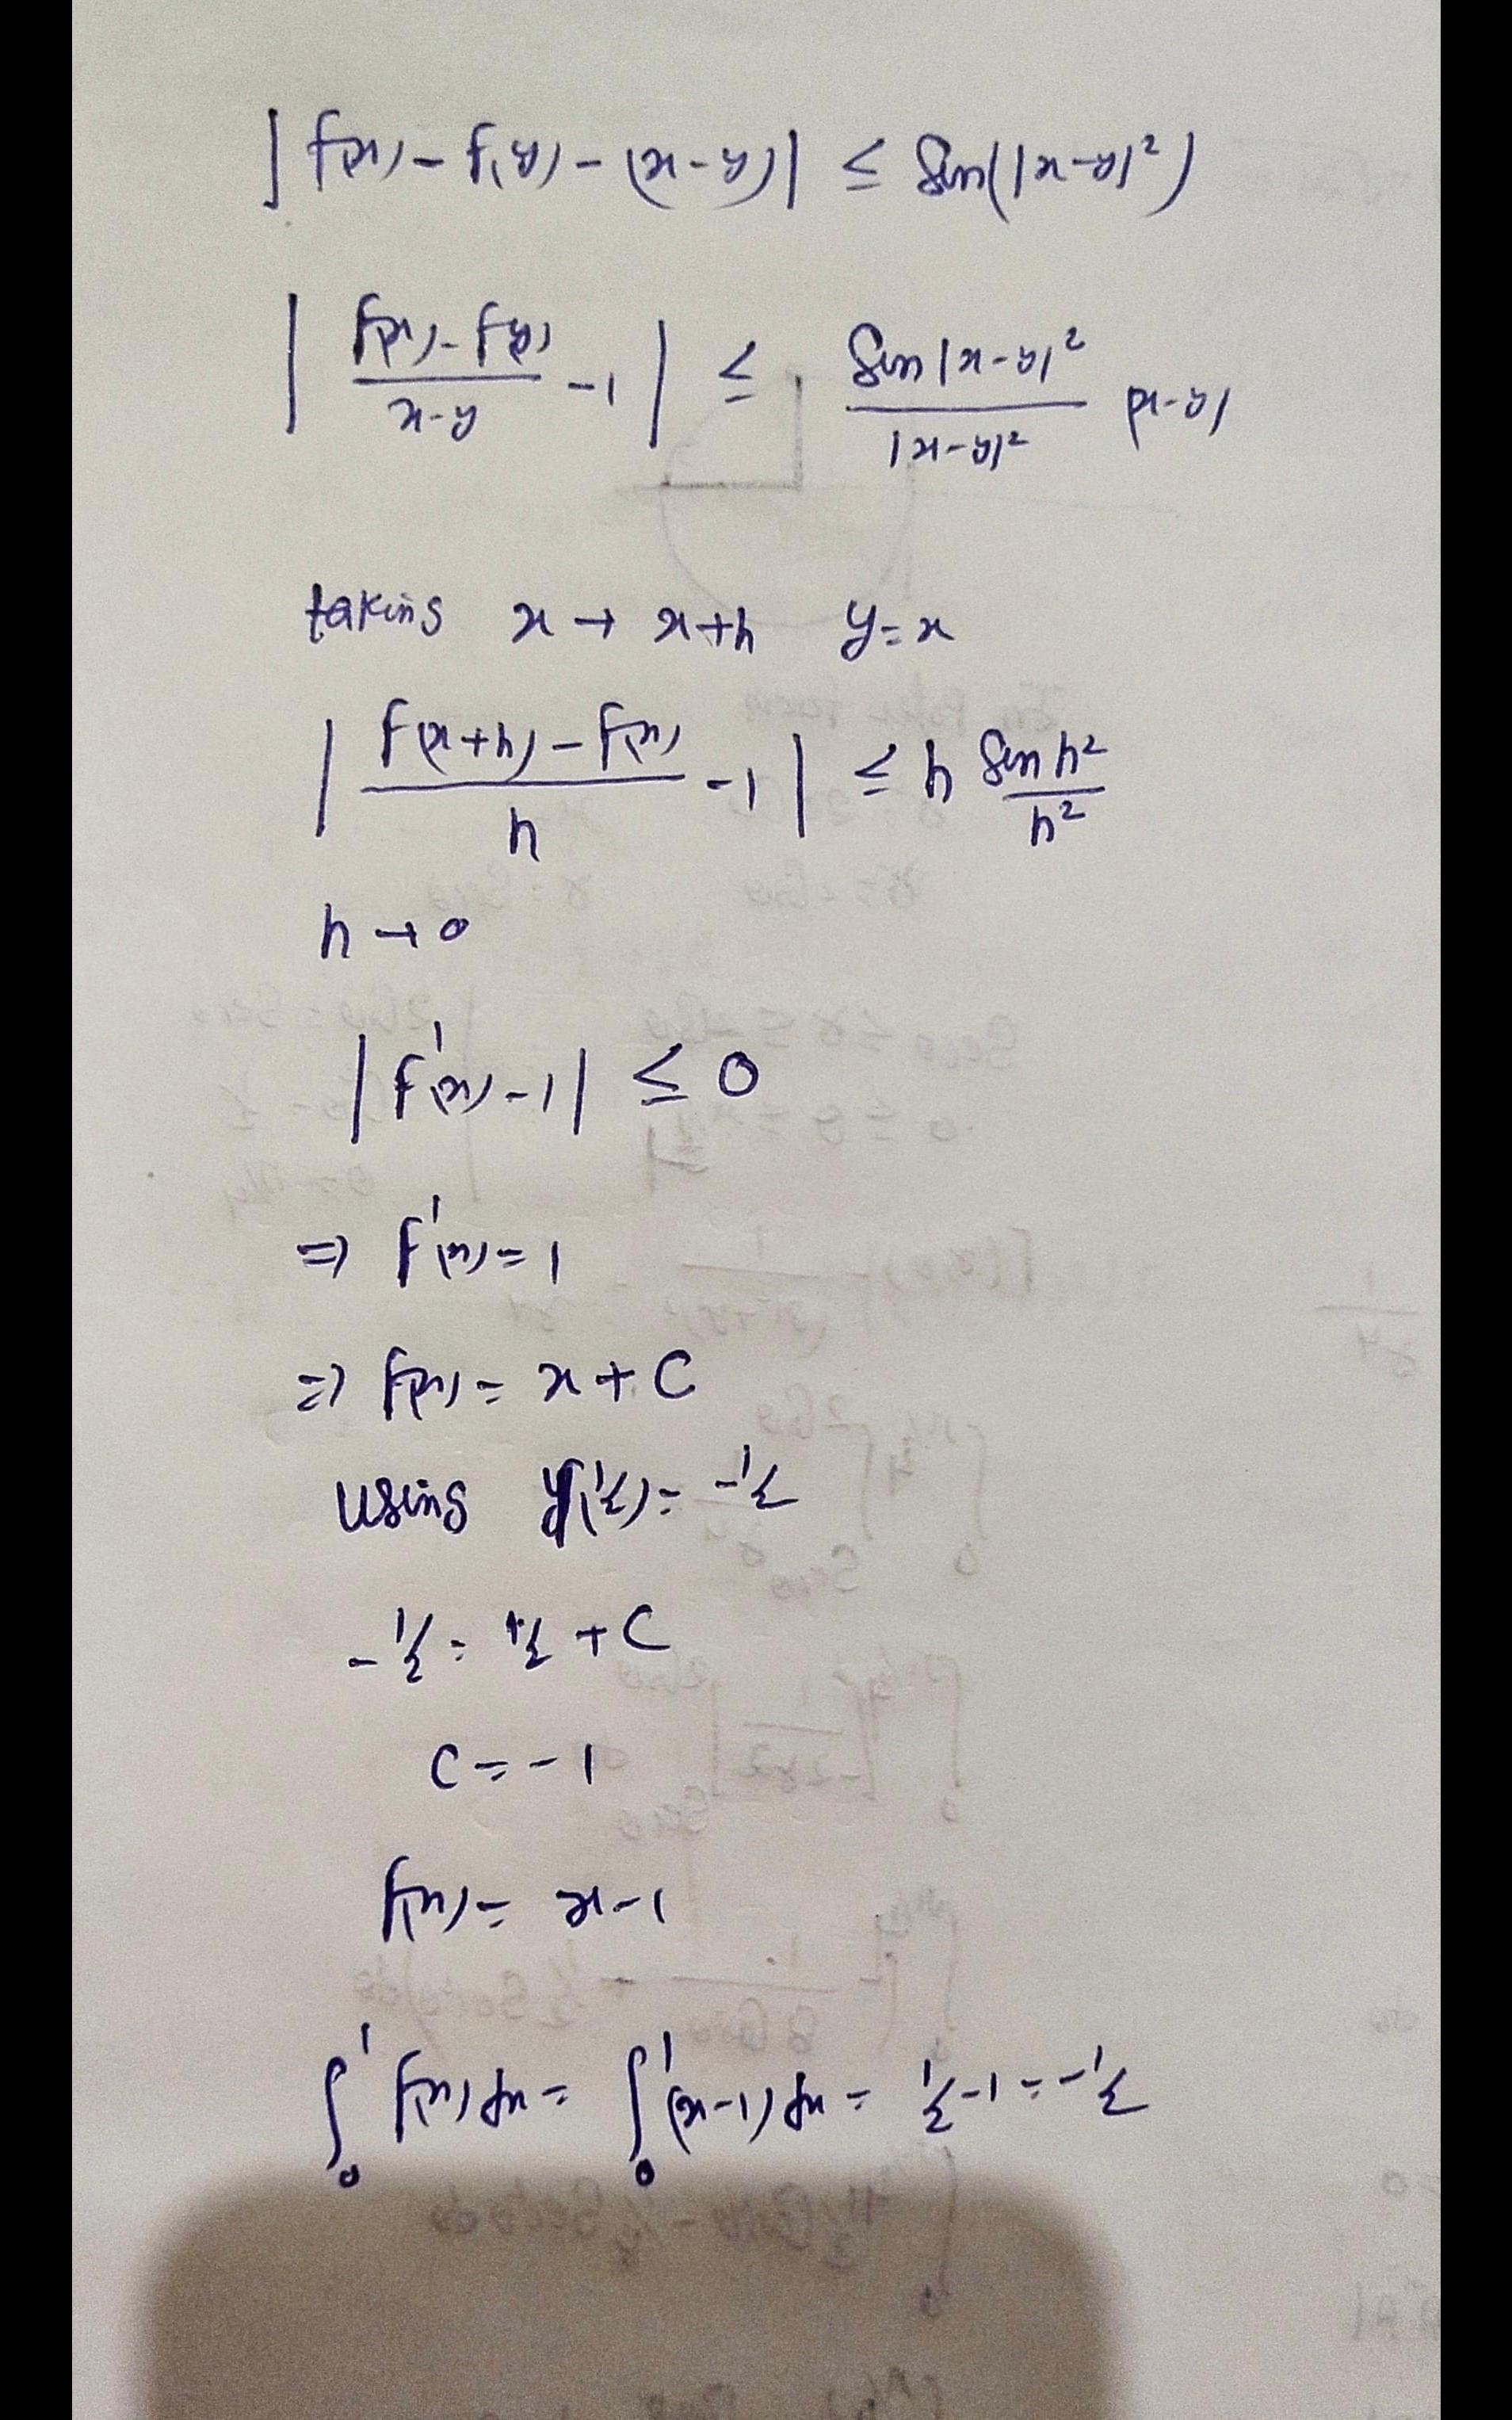 |f(x) - f(y) - (x-y)| ≤ Sin(|x-y|²)
| (f(x) - f(y))/(x-y) - 1 | ≤ (Sin|x-y|²)/(|x-y|²) |x-y|
taking x → x+h y=x
| (f(x+h) - f(x))/h - 1 | ≤ h (Sin h²)/(h²)
h → 0
|f'(x) - 1| ≤ 0
⇒ f'(x) = 1
⇒ f(x) = x + C
using y(1/2) = -1/2
-1/2 = +1/2 + C
C = -1
f(x) = x-1
∫₀¹ f(x) dx = ∫₀¹ (x-1) dx = 1/2 - 1 = -1/2